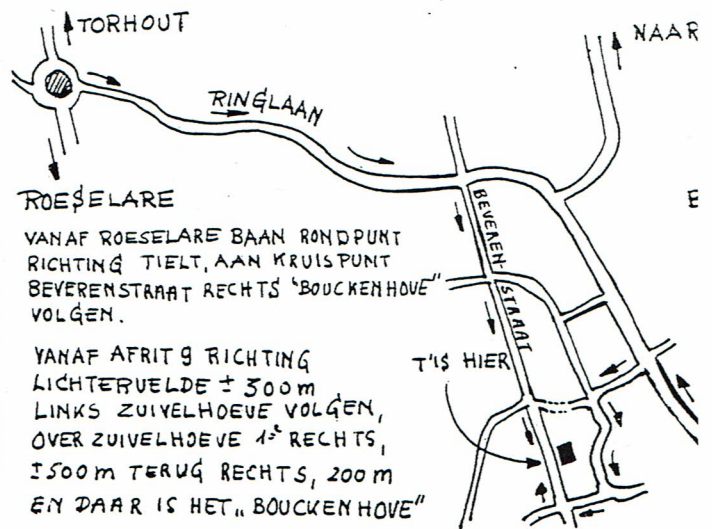 TORHOUT
NAAR
RINGLAAN
ROESELARE
BEVEREN-
STRAAT
VANAF ROESELARE BAAN RONDPUNT
RICHTING TIELT, AAN KRUISPUNT
BEVERENSTRAAT RECHTS "BOUCKENHOVE"
VOLGEN.
T'IS HIER
VANAF AFRIT 9 RICHTING
LICHTERVELDE ± 300m
LINKS ZUIVELHOEVE VOLGEN,
OVER ZUIVELHOEVE 1ste RECHTS,
±500m TERUG RECHTS, 200m
EN DAAR IS HET „BOUCKENHOVE"